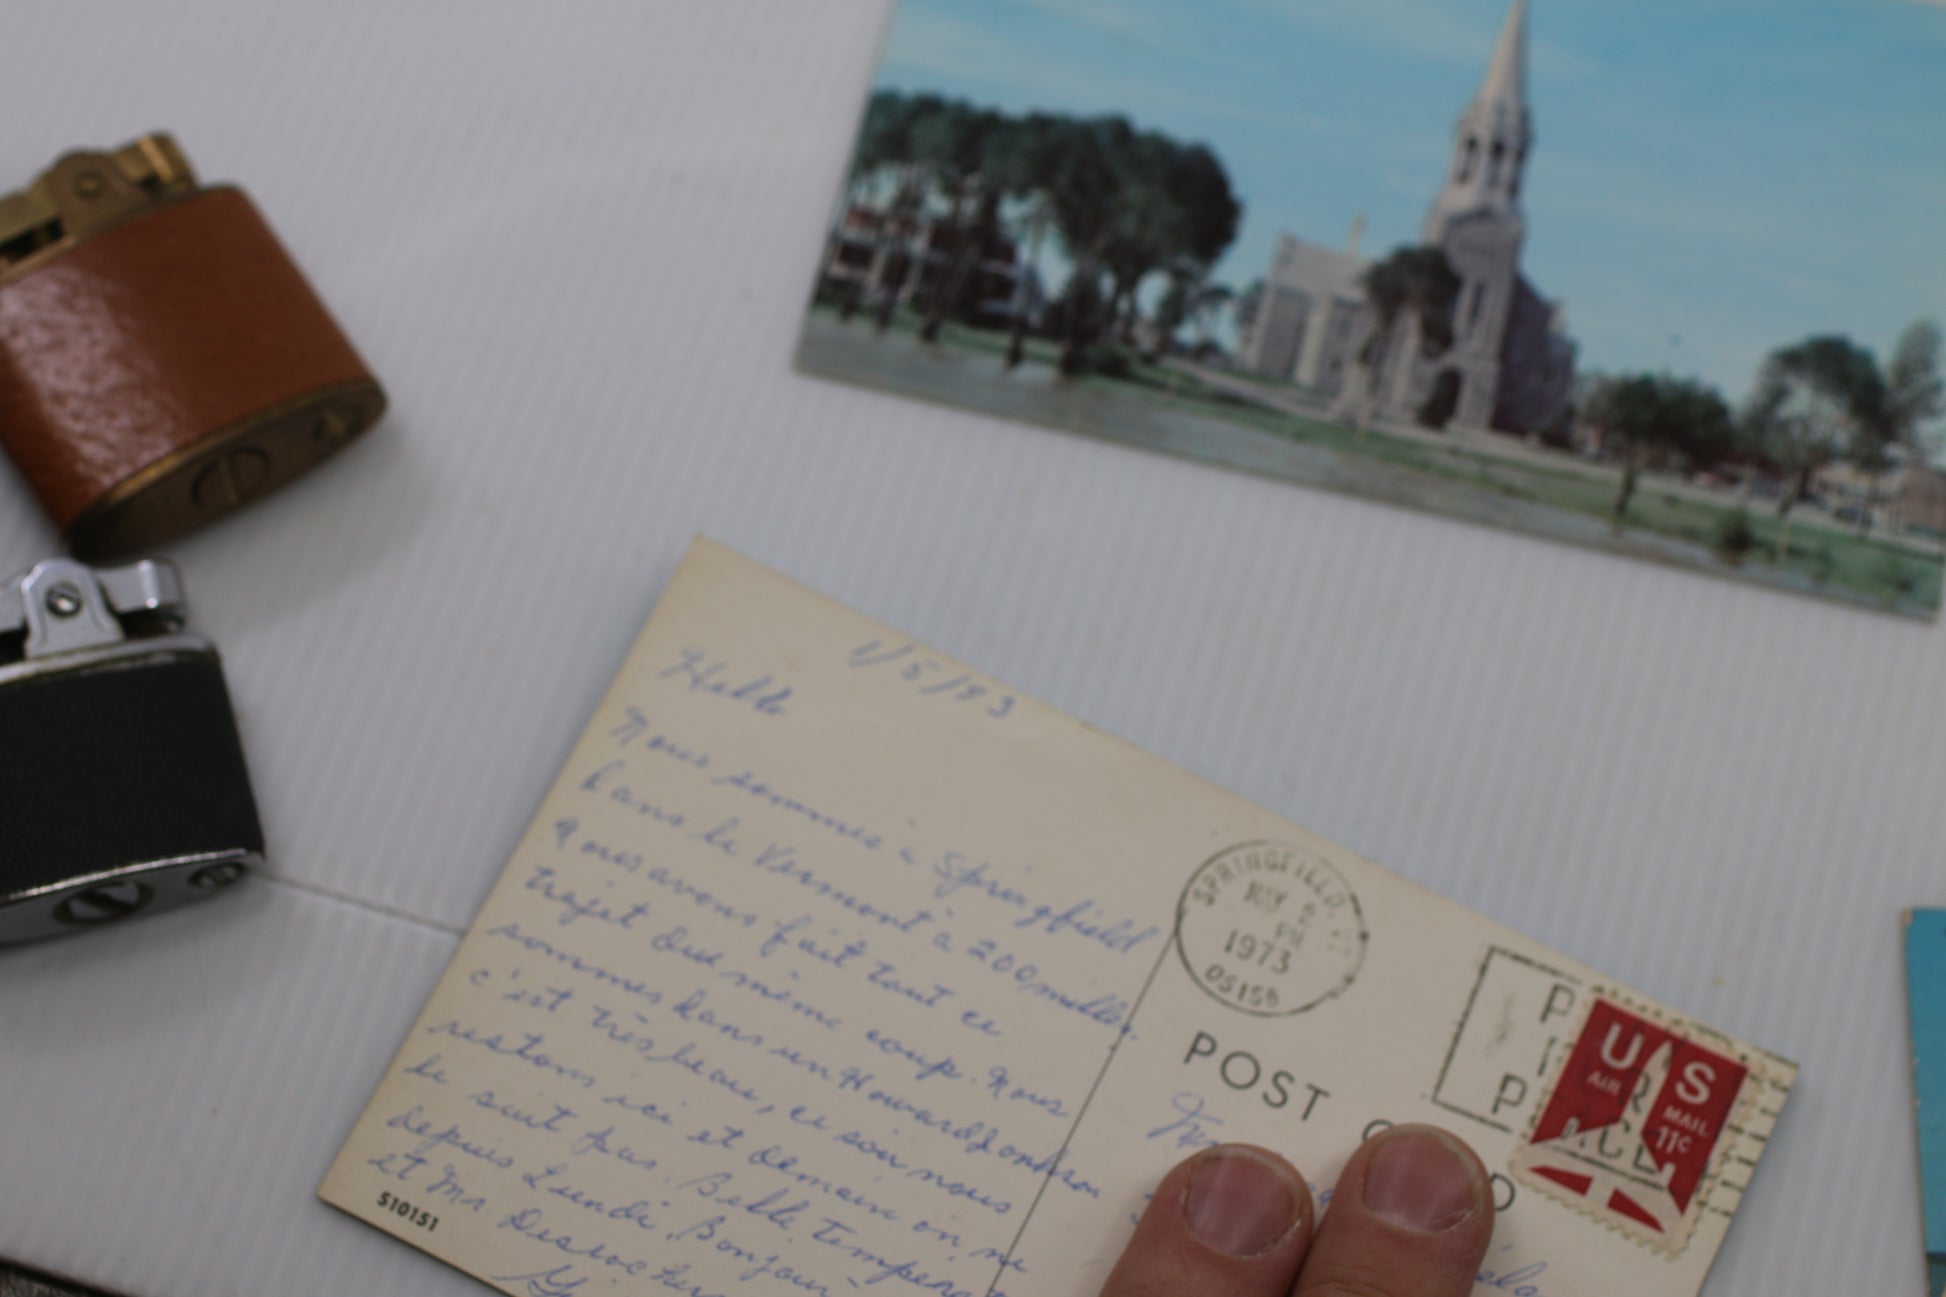 1/5/73
Hello
Nous sommes à Springfield
dans le Vermont à 200 milles.
Nous avons fait tout ce
trajet du même coup. Nous
sommes dans un Howard Johnson
c'est très beau, ce soir nous
restons ici et demain on ne
le sait pas. Belle température
depuis Lundi. Bonjour
et Mr. Desrochers
S10151
SPRINGFIELD, VT
PM
1973
05156
POST
D
P
P
US
AIR
MAIL
11c